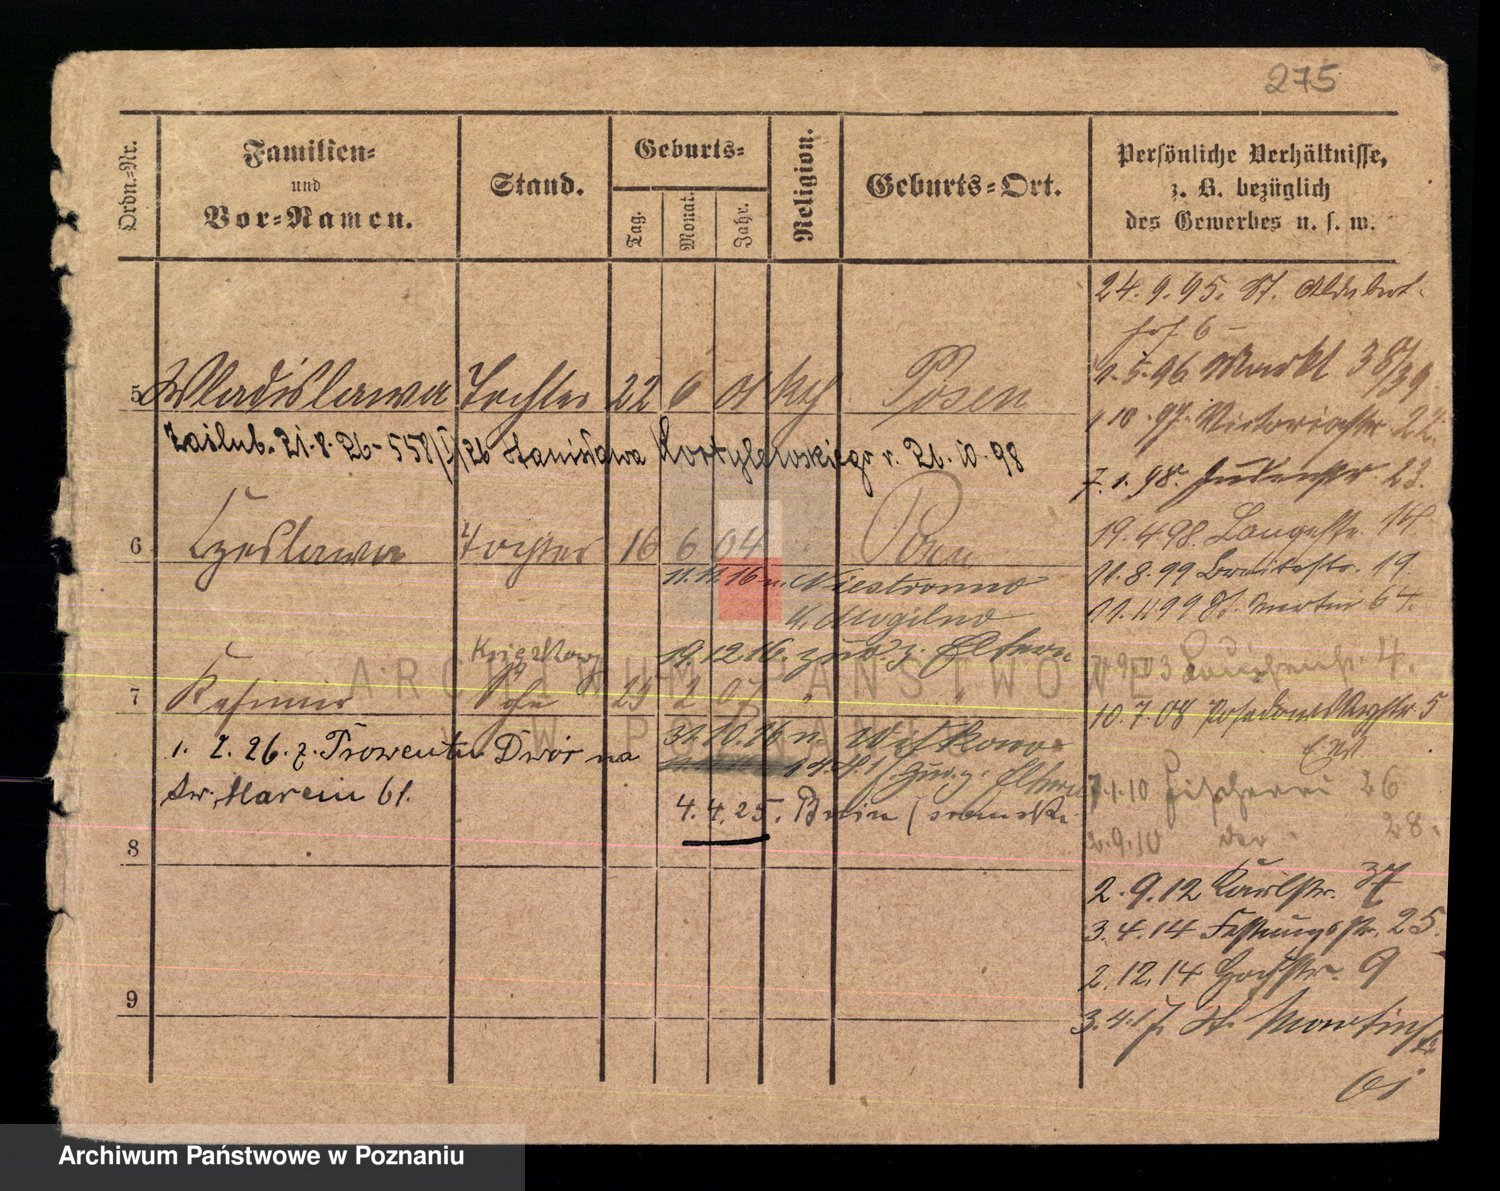 275
Ordn.-Nr.
Familien-
und
Vor-Namen.
Stand.
Geburts-
Tag.
Monat.
Jahr.
Religion.
Geburts-Ort.
Persönliche Verhältnisse,
z. B. bezüglich
des Gewerbes u. s. w.
5 Wladislawa Tochter 22 6 01 kth Posen
Zaślub. 21.8.26 - 558/I/26 Stanisława Kortylewskiego r. 21.10.98
6 Czeslawa Tochter 16 6 04 Posen
11.11.16 n. Niestronno
Mogilno
19.12.16. zur. z. Eltern
7 Kasimir 25 2 07 "
31.10.16 n. Witkowo
zur. z. Eltern
1. 7. 26. z. Prowentu Dwór na
św. Marcin 61.
4.4.25. Bnin (
8
9
24.9.95. St. Adalbert
6
1.5.96 Markt 38/39
1 10. 97. Victoriastr. 22.
7.1.98. Judenstr. 23.
19.4.98. Langestr.
11.8.99 Breitestr. 19.
11.11.99 St. Martin 64.
4.
10.7.08 Posadowskystr. 5
7.1.10 Fischerei 26
2.9.10 28.
2.9.12 Karlstr. 37
3.4.14 Festungsstr. 25.
2.12.14 9
3.4.17. St. Martinstr.
61
ARCHIWUM PAŃSTWOWE
W POZNANIU
Archiwum Państwowe w Poznaniu